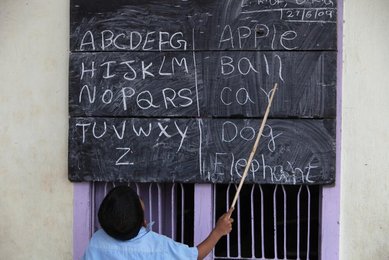 27/6/09
ABCDEFG
HIJKLM
NOPQRS
TUVWXY
Z
APPle
Ball
Cat
Dog
Elephant